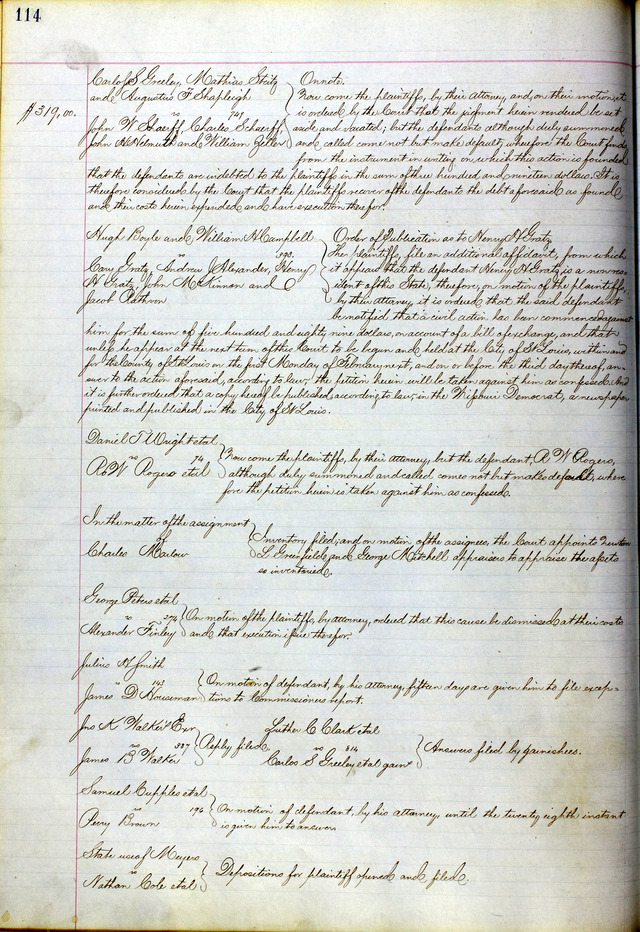 114
Carlos S Greeley, Mathias Steitz
and Augustus F Shapleigh
vs 749
John W Shaerff, Charles Schaerff,
John H Helmuth and William Geller
$319,00.
On note.
Now come the plaintiffs, by their attorney, and on their motion, it
is ordered by the Court that the judgment herein rendered be set
aside and vacated; but the defendants although duly summoned
and called come not but make default; wherefore the Court finds
from the instrument in writing on which this action is founded
that the defendants are indebted to the plaintiffs in the sum of three hundred and nineteen dollars. It is
therefore considered by the Court that the plaintiffs recover of the defendants the debt aforesaid as found
and their costs herein expended and have execution therefor.
Hugh Boyle and William H Campbell
vs 390.
Cary Gratz, Andrew J Alexander, Henry
H Gratz, John McKinnon and
Jacob
Order of Publication as to Henry H Gratz
The plaintiffs, file an additional affidavit, from which
it appears that the defendant Henry H Gratz is a non-res-
ident of this State, therefore, on motion of the plaintiffs,
by their attorney, it is ordered that the said defendant
be notified that a civil action has been commenced against
him for the sum of five hundred and eighty nine dollars, on account of a bill of exchange, and that
unless he appear at the next term of this Court to be begun and held at the City of St Louis, within and
for the County of St Louis on the first Monday of February next, and on or before the third day thereof, an-
swer to the action aforesaid, according to law, the petition herein will be taken against him as confessed. And
it is further ordered that a copy hereof be published, according to law, in the Missouri Democrat, a newspaper
printed and published in the City of St Louis.
Daniel T Wright etal
vs 74
R W Rogers etal
Now come the plaintiffs, by their attorney, but the defendant, R W Rogers,
although duly summoned and called comes not but makes default, where
fore the petition herein is taken against him as confessed.
In the matter of the assignment
of
Charles Marlow
Inventory filed; and on motion of the assignees, the Court appoint
L Greenfield and George Mitchell appraisers to appraise the assets
so inventoried.
George Peters etal
vs 274
Alexander Finley
On motion of the plaintiffs, by attorney, ordered that this cause be dismissed at their costs
and that execution issue therefor.
Julius H Smith
vs 143
James D Houseman
On motion of defendant, by his attorney, fifteen days are given him to file excep-
tions to Commissioners report.
Jno K Walker Exr
vs 337
James B Walker
Reply filed
Luther C Clark etal
vs 614
Carlos S Greeley etal garns
Answers filed by garnishees.
Samuel Cupples etal
vs 196
Perry Brown
On motion of defendant, by his attorney, until the twenty eighth instant
is given him to answer.
State use of Meyers
vs
Nathan Cole etal
Depositions for plaintiff opened and filed